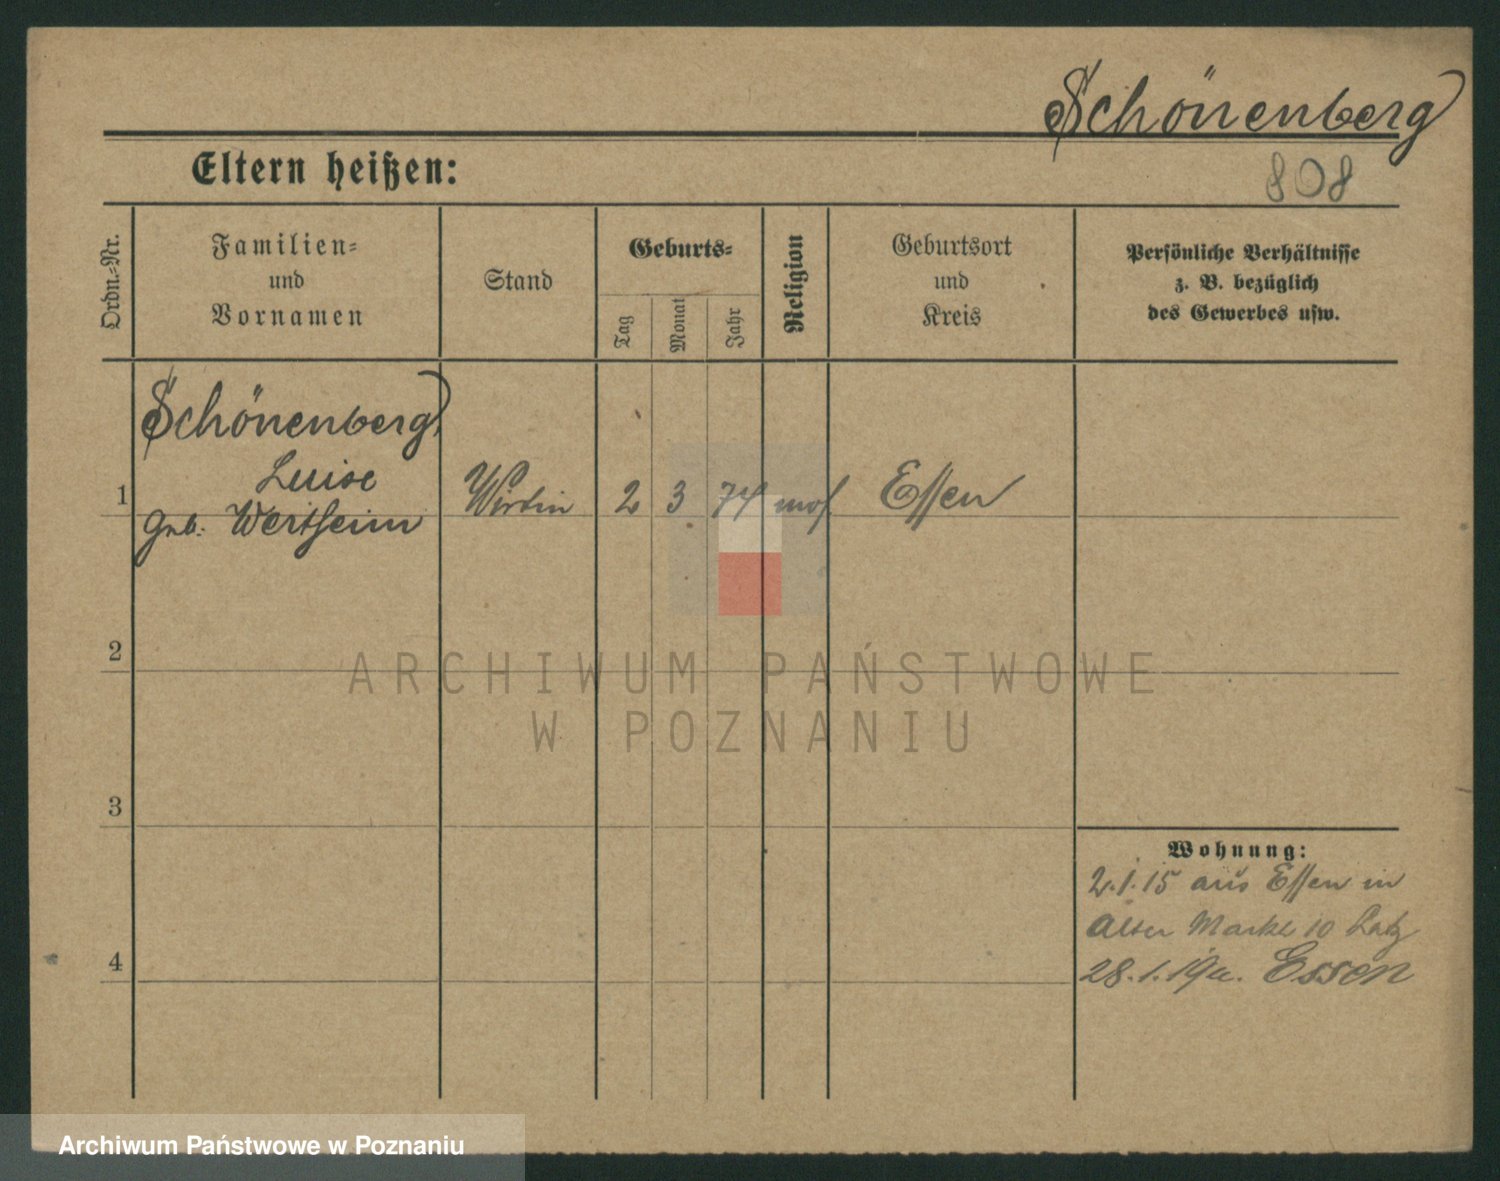 Schönenberg
808
Eltern heißen:
Ordn.-Nr.
Familien-
und
Vornamen
Stand
Geburts-
Tag
Monat
Jahr
Religion
Geburtsort
und
Kreis
Persönliche Verhältnisse
z. B. bezüglich
des Gewerbes usw.
Schönenberg,
Luise
geb. Wertheim
1
Wirtin
2
3
74
mos
Essen
2
3
4
Wohnung:
2.1.15 aus Essen in
Alter Markt 10
28.1. Essen
ARCHIWUM PAŃSTWOWE
W POZNANIU
Archiwum Państwowe w Poznaniu